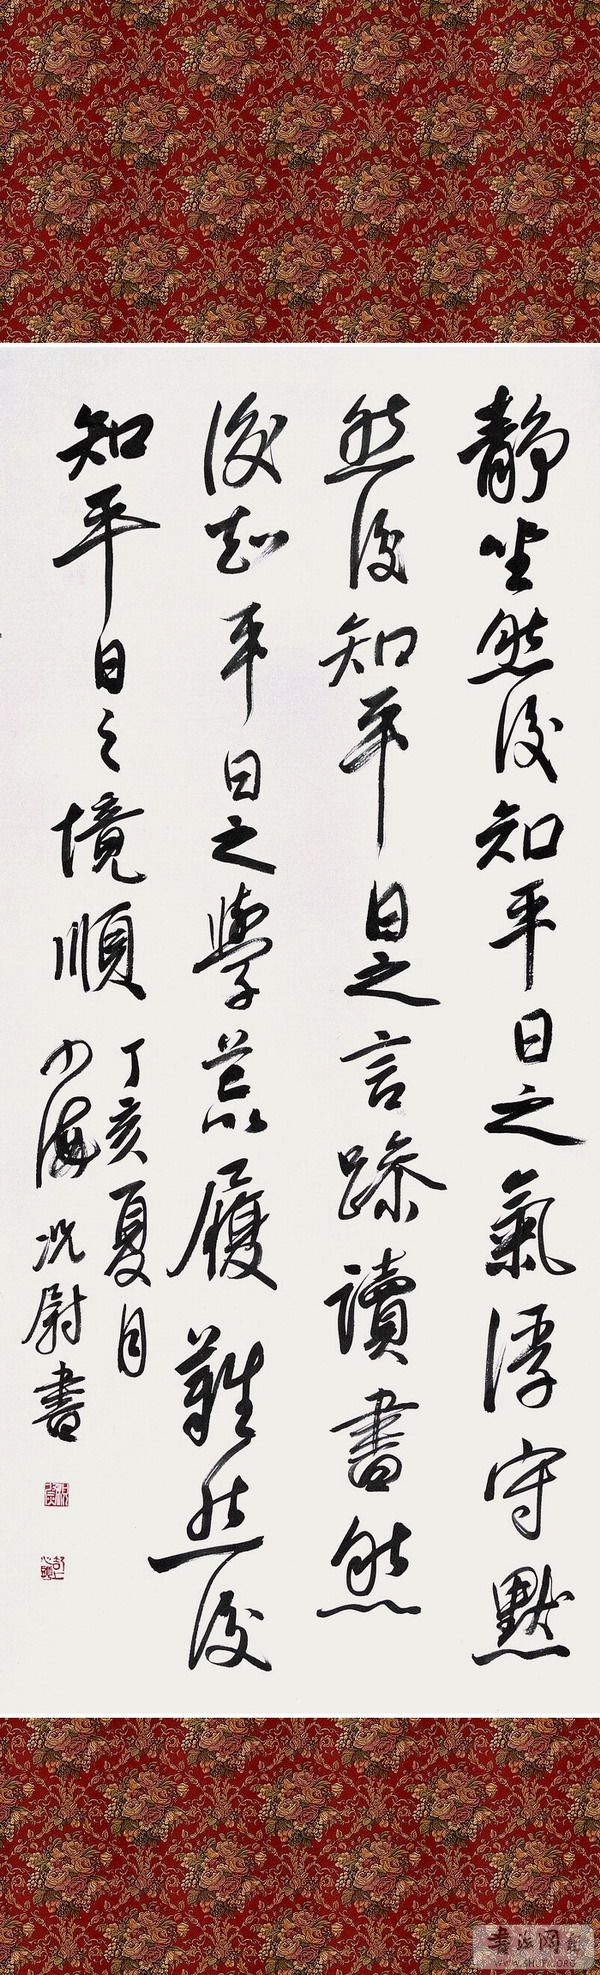 靜坐然後知平日之氣浮守默
然後知平日之言躁讀書然
後知平日之學荒履難然後
知平日之境順
丁亥夏月
海况尉書
書法网
WWW.SHUFA.ORG